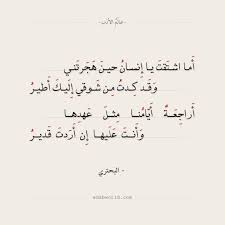 - عالم الأدب -
أَما اشتَقتَ يا إِنسانُ حينَ هَجَرتَني
وَقَد كِدتُ مِن شَوقي إِلَيكَ أَطيرُ
أَراجِعَةٌ أَيّامُنا مِثلَ عَهدِها
وَأَنتَ عَلَيها إِن أَرَدتَ قَديرُ
- البحتري -